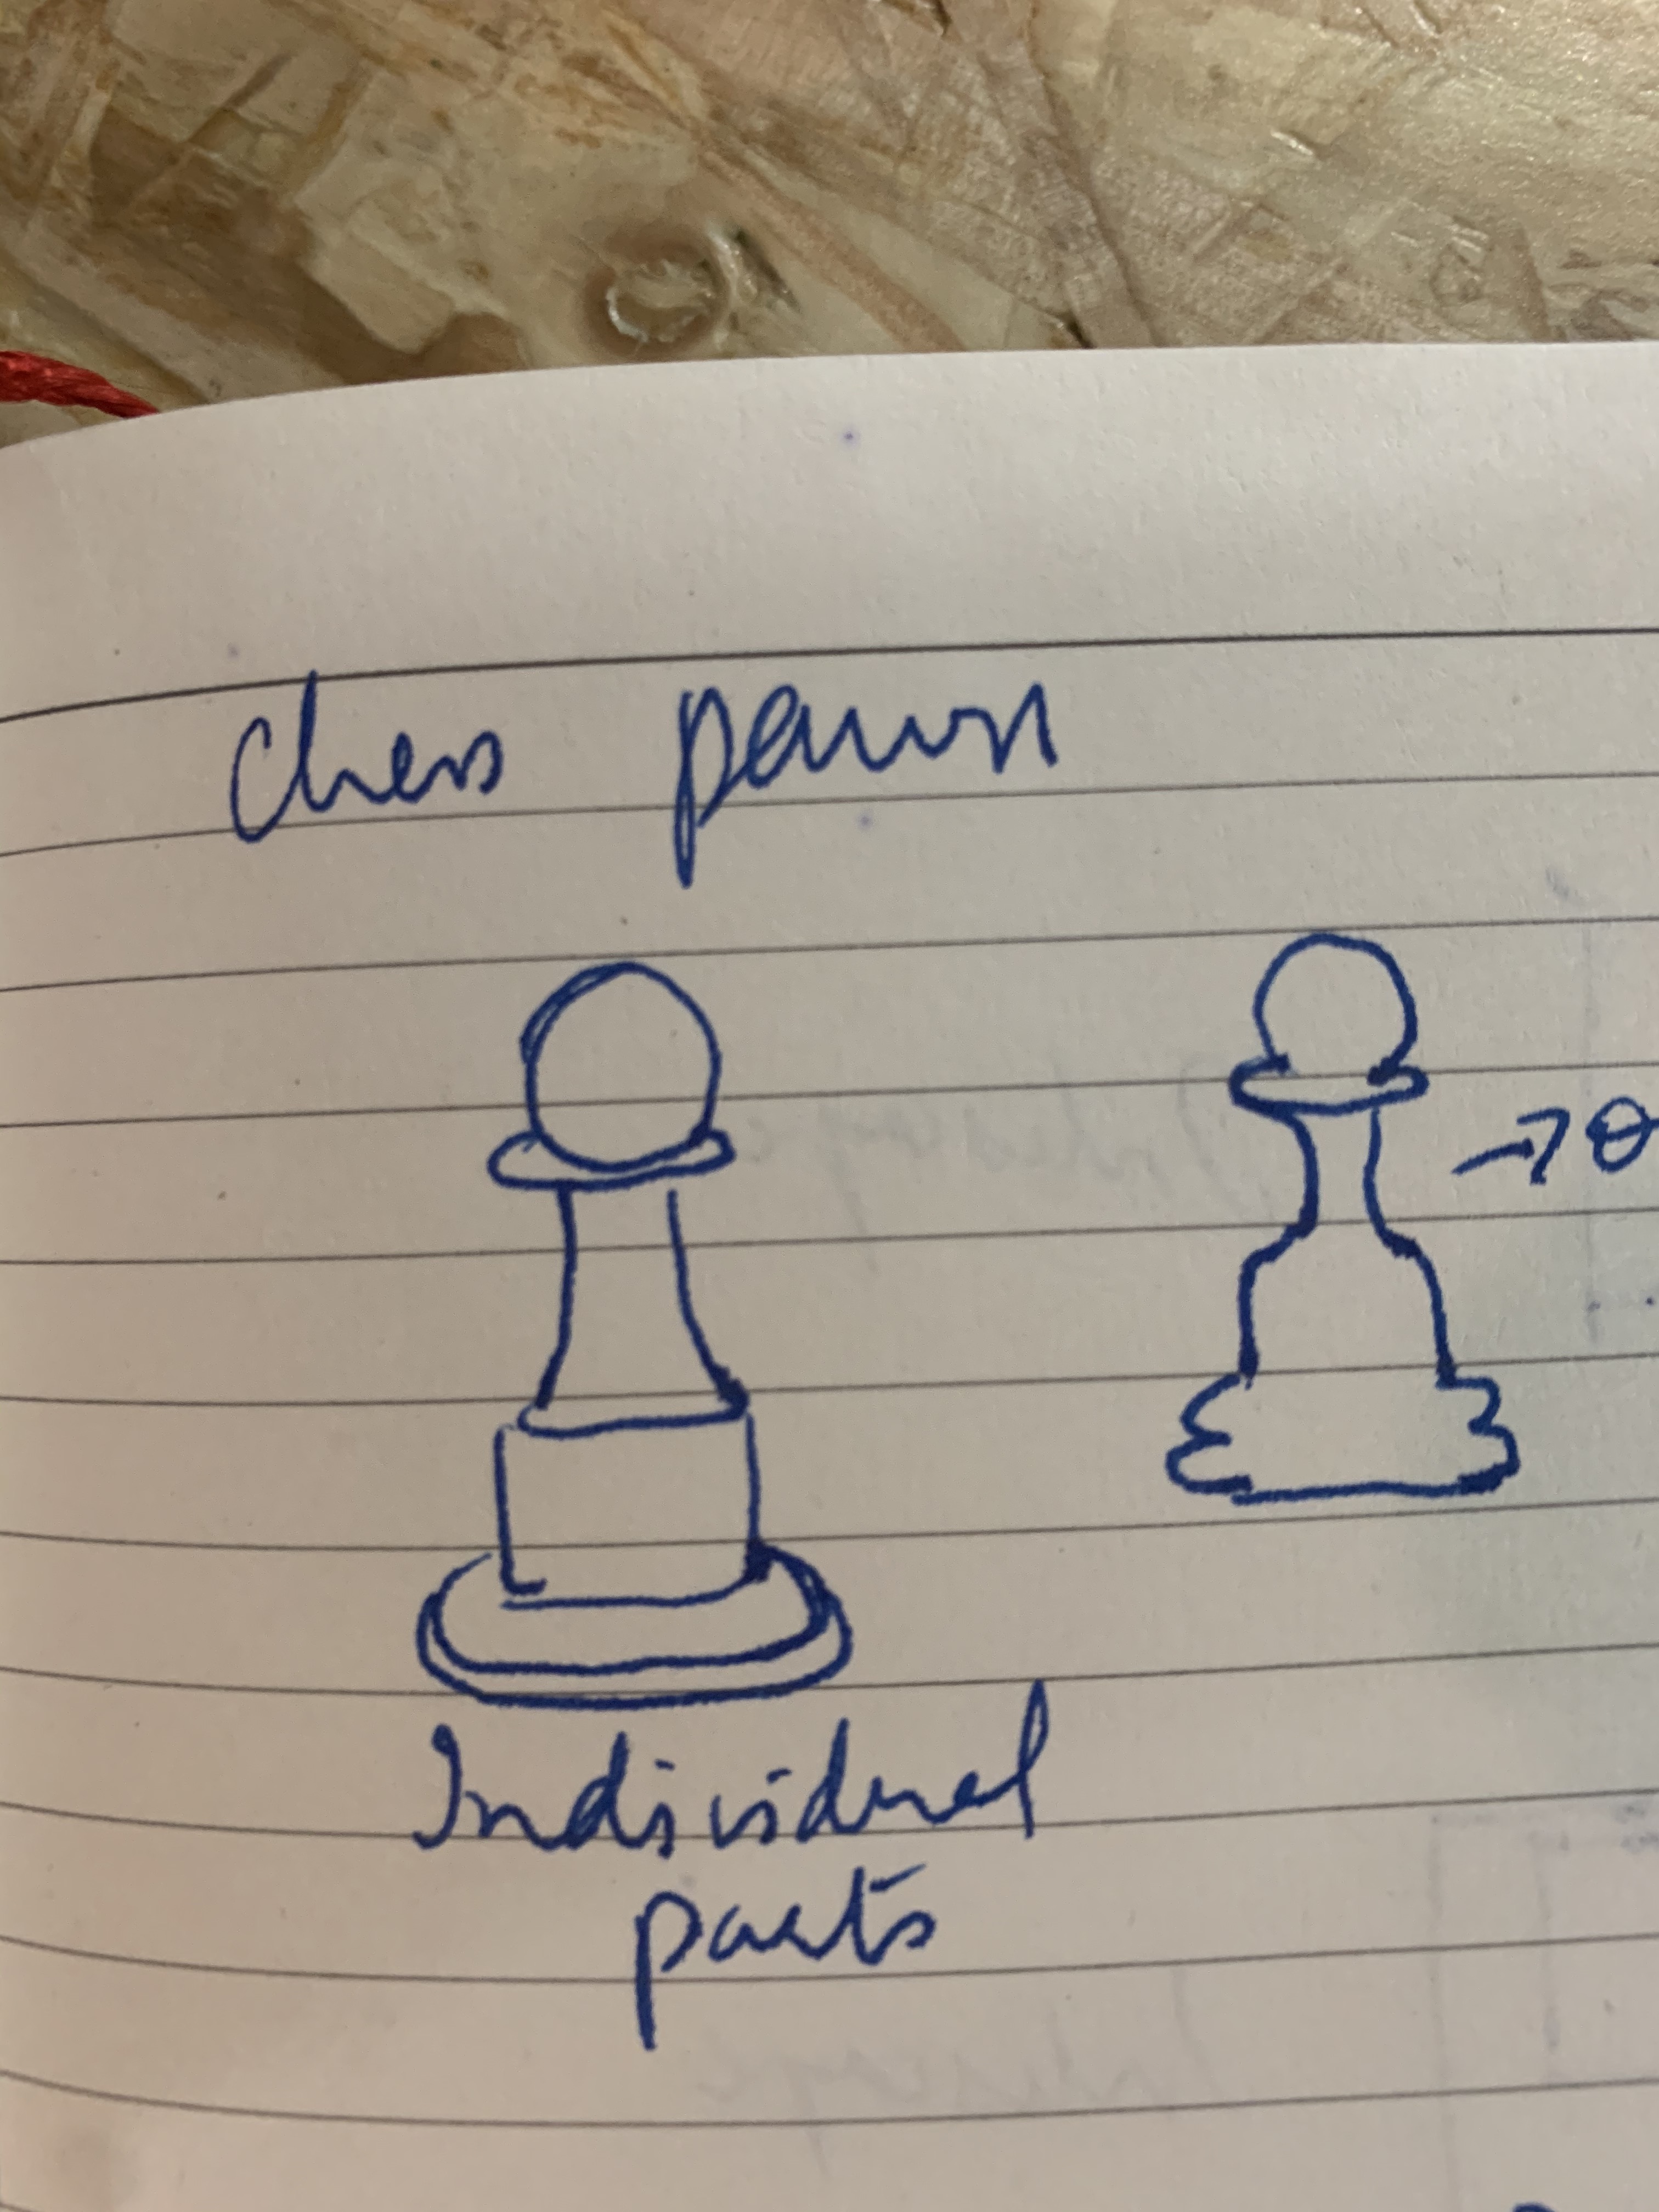 Chess pawn
Individual
parts